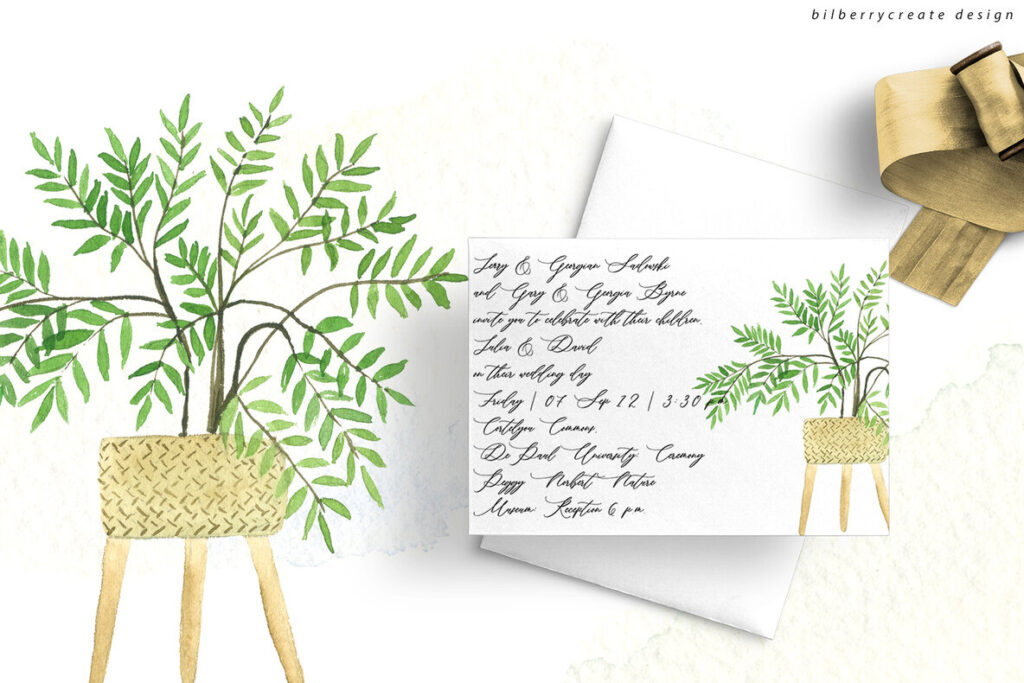 bilberrycreate design
Jerry & Georgian Sadowski
and Gary & Georgia Byrne
invite you to celebrate with their children,
Julia & David
on their wedding day
Friday | 07 Sep 12 | 3:30 pm
Cortelyou Commons,
De Paul University: Ceremony
Peggy Norbert Nature
Museum: Reception 6 p.m.